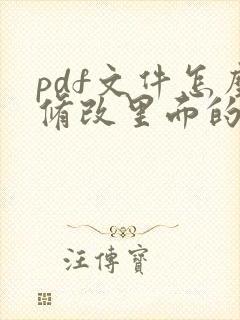 pdf文件怎么
脩改里面的
汪傳寶